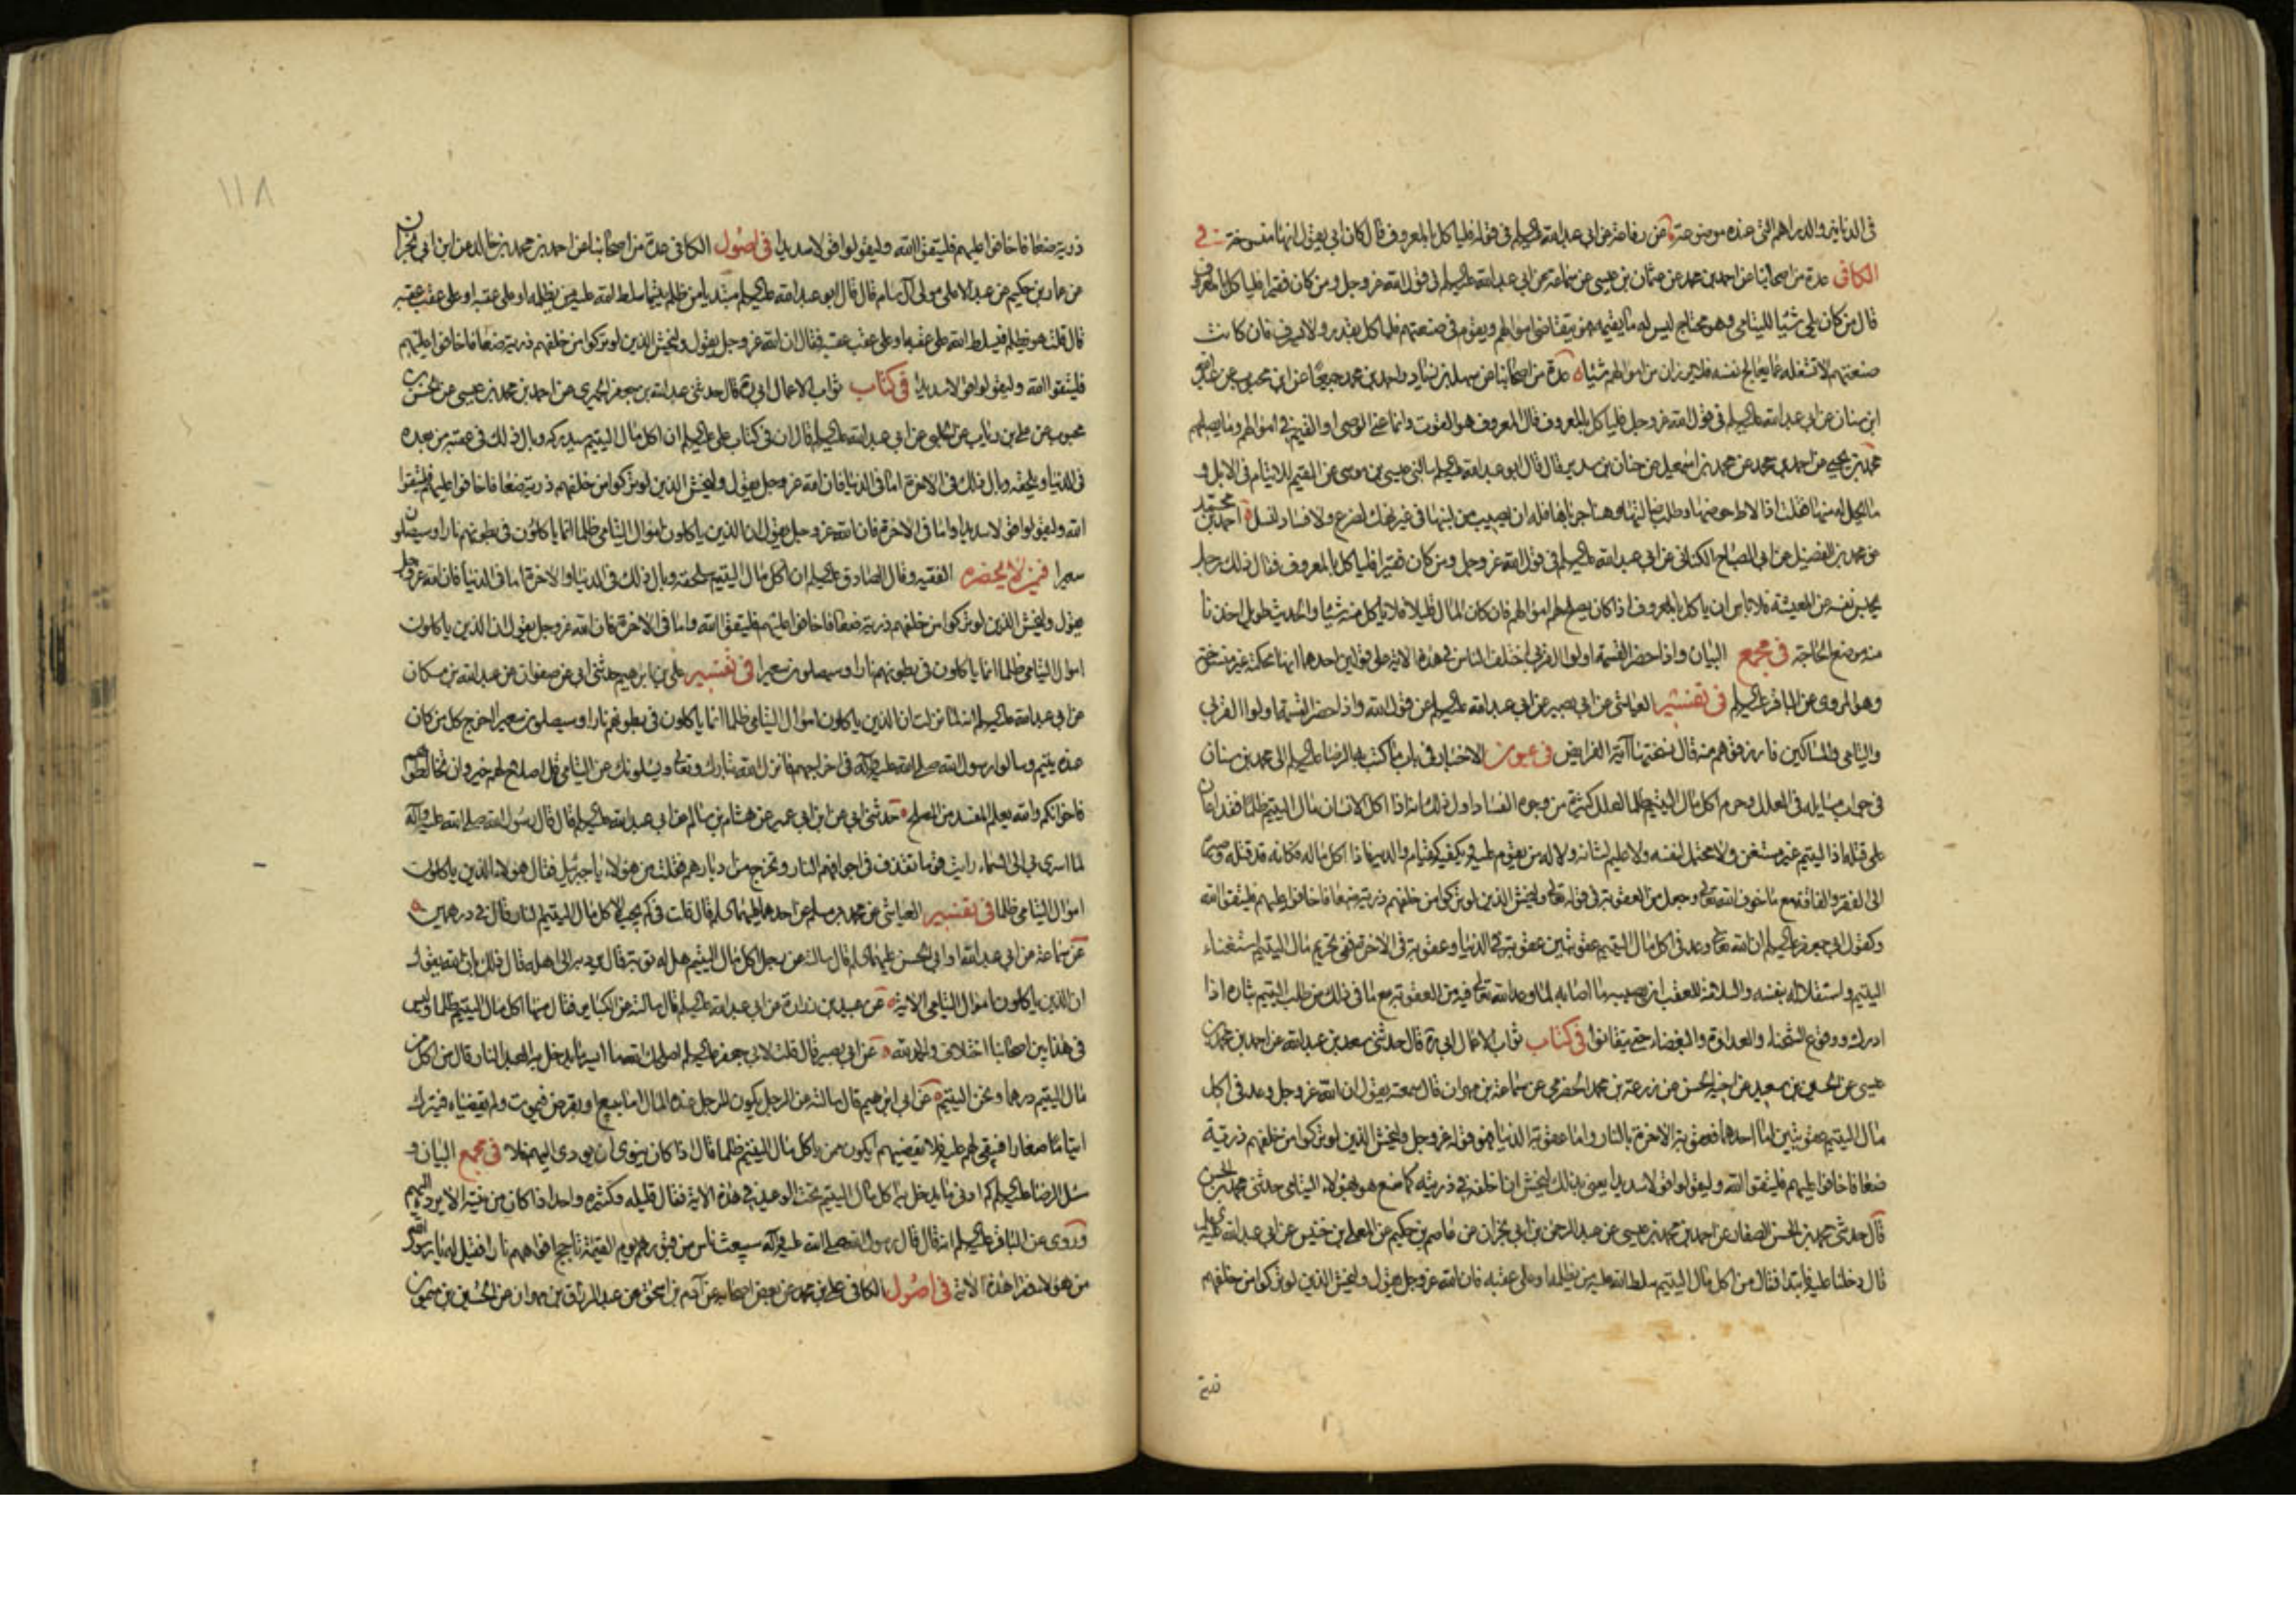 فى الدنانير والدراهم التى عنده موضوعة عن رفاعة عن ابى عبدالله عليه السلم فى قوله فلياكل بالمعروف قال كان ابى يقول انها منسوخة فى
الكافى عدة من اصحابنا عن احمد بن محمد عن عثمان بن عيسى عن سماعة عن ابى عبدالله عليه السلم فى قول الله عز وجل ومن كان فقيرا فلياكل بالمعروف
قال من كان يلى شيئا لليتامى وهو محتاج ليس له ما يقيمه فهو يتقاضى اموالهم ويقوم فى ضيعتهم فلياكل بقدر ولا يسرف فان كانت
ضيعتهم لا تشغله عما يعالج لنفسه فلا يرزان من اموالهم شيئا عدة من اصحابنا عن سهل بن زياد واحمد بن محمد جميعا عن ابن محبوب عن عبدالله
ابن سنان عن ابى عبدالله عليه السلم فى قول الله عز وجل فلياكل بالمعروف قال المعروف هو القوت وانما عنى الوصى او القيم فى اموالهم وما يصلحهم
محمد بن يحيى عن احمد بن محمد عن محمد بن اسمعيل عن حنان بن سدير قال قال ابو عبدالله عليه السلم سالنى عيسى بن موسى عن القيم للايتام فى الابل و
ما يحل له منها فقلت اذا لاط حوضها وطلب ضالتها وهنا جرباها فله ان يصيب من لبنها فى غير نهك لضرع ولا فساد لنسل احمد بن محمد
عن محمد بن الفضيل عن ابى الصباح الكنانى عن ابى عبدالله عليه السلم فى قول الله عز وجل ومن كان فقيرا فلياكل بالمعروف فقال ذلك رجل
يحبس نفسه عن المعيشة فلا باس ان ياكل بالمعروف اذا كان يصلح لهم اموالهم فان كان المال قليلا فلا ياكل منه شيئا والحديث طويل اخذنا
منه موضع الحاجة فى مجمع البيان واذا حضر القسمة اولوا القربى اختلف الناس فى هذه الاية على قولين احدهما انها محكمة غير منسوخة
وهو المروى عن الباقر عليه السلم فى تفسير العياشى عن ابى بصير عن ابى عبدالله عليه السلم عن قول الله واذا حضر القسمة اولوا القربى
واليتامى والمساكين فارزقوهم منه قال نسختها آية الفرايض فى عيون الاخبار فى باب ما كتب به الرضا عليه السلم الى محمد بن سنان
فى جواب مسايله فى العلل وحرم اكل مال اليتيم ظلما لعلل كثيرة من وجوه الفساد اول ذلك انه اذا اكل الانسان مال اليتيم ظلما فقد اعان
على قتله اذ اليتيم غير مستغن ولا محتمل لنفسه ولا عليم لشانه ولا له من يقوم عليه ويكفيه كقيام والديه فاذا اكل ماله فكانه قد قتله وصيره
الى الفقر والفاقة مع ما خوف الله تعالى وجعل من العقوبة فى قوله تعالى وليخش الذين لو تركوا من خلفهم ذرية ضعافا خافوا عليهم فليتقوا الله
وكقول ابى جعفر عليه السلم ان الله تعالى وعد فى اكل مال اليتيم عقوبتين عقوبة فى الدنيا وعقوبة فى الاخرة ففى تحريم مال اليتيم استغناء
اليتيم واستقلاله بنفسه والسلامة للعقب ان يصيبه ما اصابه لما وعد الله تعالى فيه من العقوبة مع ما فى ذلك من طلب اليتيم بثاره اذا
ادرك ووقوع الشحناء والعداوة والبغضاء حتى يتفانوا فى كتاب ثواب الاعمال ابى ره قال حدثنى سعد بن عبدالله عن احمد بن محمد بن
عيسى عن الحسين بن سعيد عن اخيه الحسن عن زرعة بن محمد الحضرمى عن سماعة بن مهران قال سمعته يقول ان الله عز وجل وعد فى اكل
مال اليتيم عقوبتين اما احدهما فعقوبة الاخرة بالنار واما عقوبة الدنيا فهو قوله عز وجل وليخش الذين لو تركوا من خلفهم ذرية
ضعافا خافوا عليهم فليتقوا الله وليقولوا قولا سديدا يعنى بذلك ليخش ان اخلفه فى ذريته كما صنع هو بهؤلاء اليتامى حدثنى محمد بن الحسن
قال حدثنى محمد بن الحسن الصفار عن احمد بن محمد بن عيسى عن عبدالرحمن بن ابى نجران عن عاصم بن حكيم عن المعلى بن خنيس عن ابى عبدالله عليه السلم
قال دخلنا عليه فابتدا فقال من اكل مال اليتيم سلط الله عليه من يظلمه او على عقبه فان الله عز وجل يقول وليخش الذين لو تركوا من خلفهم
ذرية
١١٨
ذرية ضعافا خافوا عليهم فليتقوا الله وليقولوا قولا سديدا فى اصول الكافى عدة من اصحابنا عن احمد بن محمد بن خالد عن ابن ابى نجران
عن عمار بن حكيم عن عبد الاعلى مولى آل سام قال قال ابو عبدالله عليه السلم مبتديا من ظلم يتيما سلط الله عليه من يظلمه او على عقبه او على عقب عقبه
قال قلت هو يظلم فيسلط الله على عقبه او على عقب عقبه فقال ان الله عز وجل يقول وليخش الذين لو تركوا من خلفهم ذرية ضعافا خافوا عليهم
فليتقوا الله وليقولوا قولا سديدا فى كتاب ثواب الاعمال ابى ره قال حدثنى عبدالله بن جعفر الحميرى عن احمد بن محمد بن عيسى عن الحسن بن
محبوب عن على بن رئاب عن الحلبى عن ابى عبدالله عليه السلم قال ان فى كتاب على عليه السلم ان اكل مال اليتيم سيدركه وبال ذلك فى عقبه من بعده
فى الدنيا ويلحقه وبال ذلك فى الاخرة اما فى الدنيا فان الله عز وجل يقول وليخش الذين لو تركوا من خلفهم ذرية ضعافا خافوا عليهم فليتقوا
الله وليقولوا قولا سديدا واما فى الاخرة فان الله عز وجل يقول ان الذين ياكلون اموال اليتامى ظلما انما ياكلون فى بطونهم نارا وسيصلون
سعيرا فيمن لا يحضره الفقيه وقال الصادق عليه السلم ان اكل مال اليتيم سيلحقه وبال ذلك فى الدنيا والاخرة اما فى الدنيا فان الله عز وجل
يقول وليخش الذين لو تركوا من خلفهم ذرية ضعافا خافوا عليهم فليتقوا الله واما فى الاخرة فان الله عز وجل يقول ان الذين ياكلون
اموال اليتامى ظلما انما ياكلون فى بطونهم نارا وسيصلون سعيرا فى تفسير على بن ابرهيم حدثنى ابى عن صفوان عن عبدالله بن مسكان
عن ابى عبدالله عليه السلم انه لما نزلت ان الذين ياكلون اموال اليتامى ظلما انما ياكلون فى بطونهم نارا وسيصلون سعيرا اخرج كل من كان
عنده يتيم وسالوا رسول الله صلى الله عليه وآله فى اخراجهم فانزل الله تبارك وتعالى ويسئلونك عن اليتامى قل اصلاح لهم خير وان تخالطوهم
فاخوانكم والله يعلم المفسد من المصلح حدثنى ابى عن ابن ابى عمير عن هشام بن سالم عن ابى عبدالله عليه السلم قال قال رسول الله صلى الله عليه وآله
لما اسرى بى الى السماء رايت قوما تقذف فى اجوافهم النار وتخرج من ادبارهم فقلت من هؤلاء يا جبرئيل فقال هؤلاء الذين ياكلون
اموال اليتامى ظلما فى تفسير العياشى عن محمد بن مسلم عن احدهما عليهما السلم قال قلت فى كم يجب لاكل مال اليتيم النار قال فى درهمين
عن سماعة عن ابى عبدالله او ابى الحسن عليهما السلم قال سالته عن رجل اكل مال اليتيم هل له توبة قال يرده الى اهله قال ذلك بان الله يقول
ان الذين ياكلون اموال اليتامى الاية عن عبيد بن زرارة عن ابى عبدالله عليه السلم قال سالته عن الكباير فقال منها اكل مال اليتيم ظلما وليس
فى هذا بين اصحابنا اختلاف والحمد لله عن ابى بصير قال قلت لابى جعفر عليه السلم اصلحك الله ما ايسر ما يدخل به العبد النار قال من اكل من
مال اليتيم درهما ونحن اليتيم عن ابى ابرهيم قال سالته عن الرجل يكون للرجل عنده المال اما ببيع او بقرض فيموت ولم يقضه اياه فيترك
ايتاما صغارا فيبقى لهم عليه فلا يقضيهم ايكون ممن ياكل مال اليتيم ظلما قال اذا كان ينوى ان يؤدى اليهم فلا فى مجمع البيان و
سئل الرضا عليه السلم كم ادنى ما يدخل به اكل مال اليتيم تحت الوعيد فى هذه الاية فقال قليله وكثيره واحد اذا كان من نيته ان لا يرده اليهم
وروى عن الباقر عليه السلم انه قال قال رسول الله صلى الله عليه وآله سيبعث ناس من قبورهم يوم القيمة تاجج افواههم نارا فقيل له يا رسول الله
من هؤلاء فقرا هذه الاية فى اصول الكافى على بن محمد عن بعض اصحابه عن آدم بن اسحق عن عبدالرزاق بن مهران عن الحسين بن ميمون